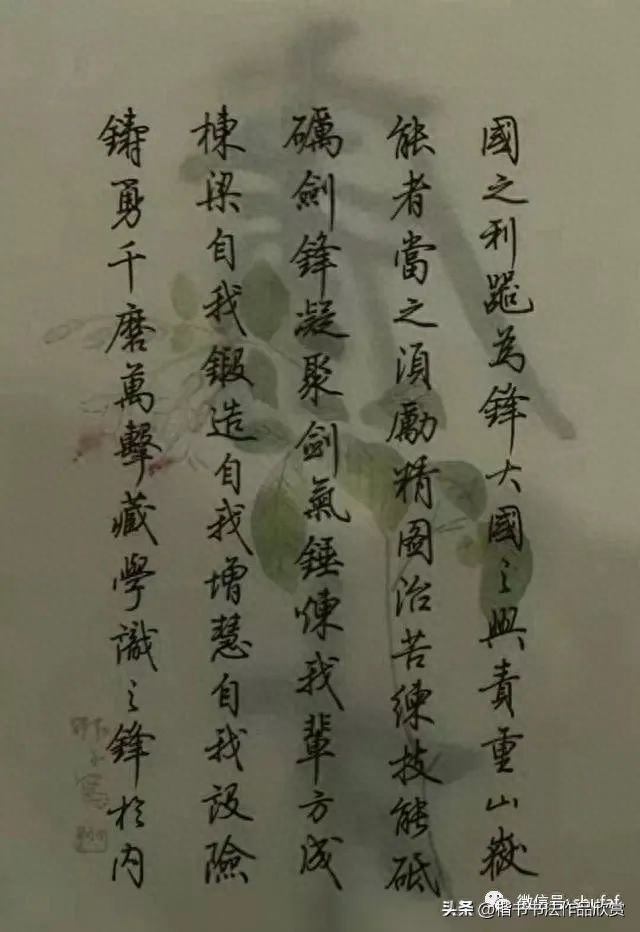 國之利器為鋒大國之興責重山嶽
能者當之須勵精圖治苦練技能砥
礪劍鋒凝聚劍氣錘煉我輩方成
棟梁自我鍛造自我增慧自我設險
鑄勇千磨萬擊藏學識之鋒於內
微信号: shufaf
头条 @楷书书法作品欣赏